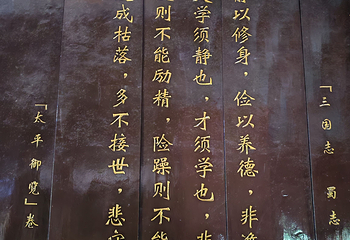 「三国志 蜀志
以修身，俭以养德，非
学须静也，才须学也，非
则不能励精，险躁则不能
成枯落，多不接世，悲守
「太平御览」卷